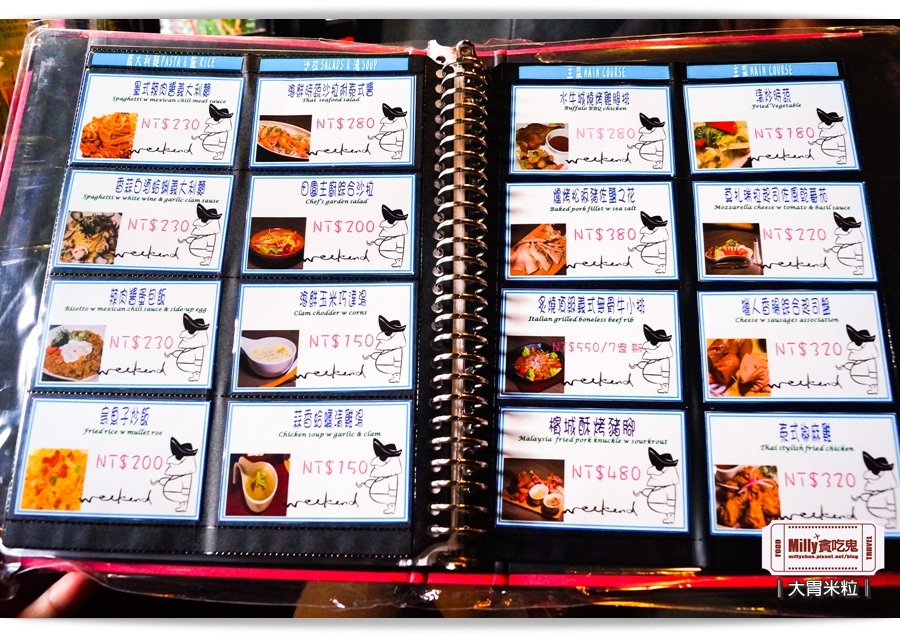 義大利麵 PASTA & 飯 RICE
墨式辣肉醬義大利麵
Spaghetti w mexican chili meat sauce
NT$230
weekend
香蒜白酒蛤蜊義大利麵
Spaghetti w white wine & garlic clam sauce
NT$230
weekend
辣肉醬蛋包飯
Risotto w mexican chili sauce & side-up egg
NT$230
weekend
烏魚子炒飯
Fried rice w mullet roe
NT$200
weekend
沙拉 SALADS & 湯 SOUP
海鮮時蔬沙拉附泰式醬
Thai seafood salad
NT$280
weekend
田園主廚綜合沙拉
Chef's garden salad
NT$200
weekend
海鮮玉米巧達湯
Clam chodder w corns
NT$150
weekend
蒜香蛤蠣清雞湯
Chicken soup w garlic & clam
NT$150
weekend
主菜 MAIN COURSE
水牛城燒烤雞腿排
Buffalo BBQ chicken
NT$280
weekend
爐烤松阪豬佐鹽之花
Baked pork fillet w sea salt
NT$380
weekend
炙燒酒釀義式無骨牛小排
Italian grilled boneless beef rib
NT$550/7盎斯
weekend
檳城酥烤豬腳
Malaysia fried pork knuckle w sourkrout
NT$480
weekend
主菜 MAIN COURSE
清炒時蔬
Fried Vegetable
NT$180
weekend
莫札瑞拉起司佐風乾番茄
Mozzarella cheese w tomato & basil sauce
NT$220
weekend
獵人香腸綜合起司盤
Cheese w sausages association
NT$320
weekend
泰式椒麻雞
Thai stylish fried chicken
NT$320
weekend
FOOD
Milly貪吃鬼
millychun.pixnet.net/blog
TRAVEL
大胃米粒